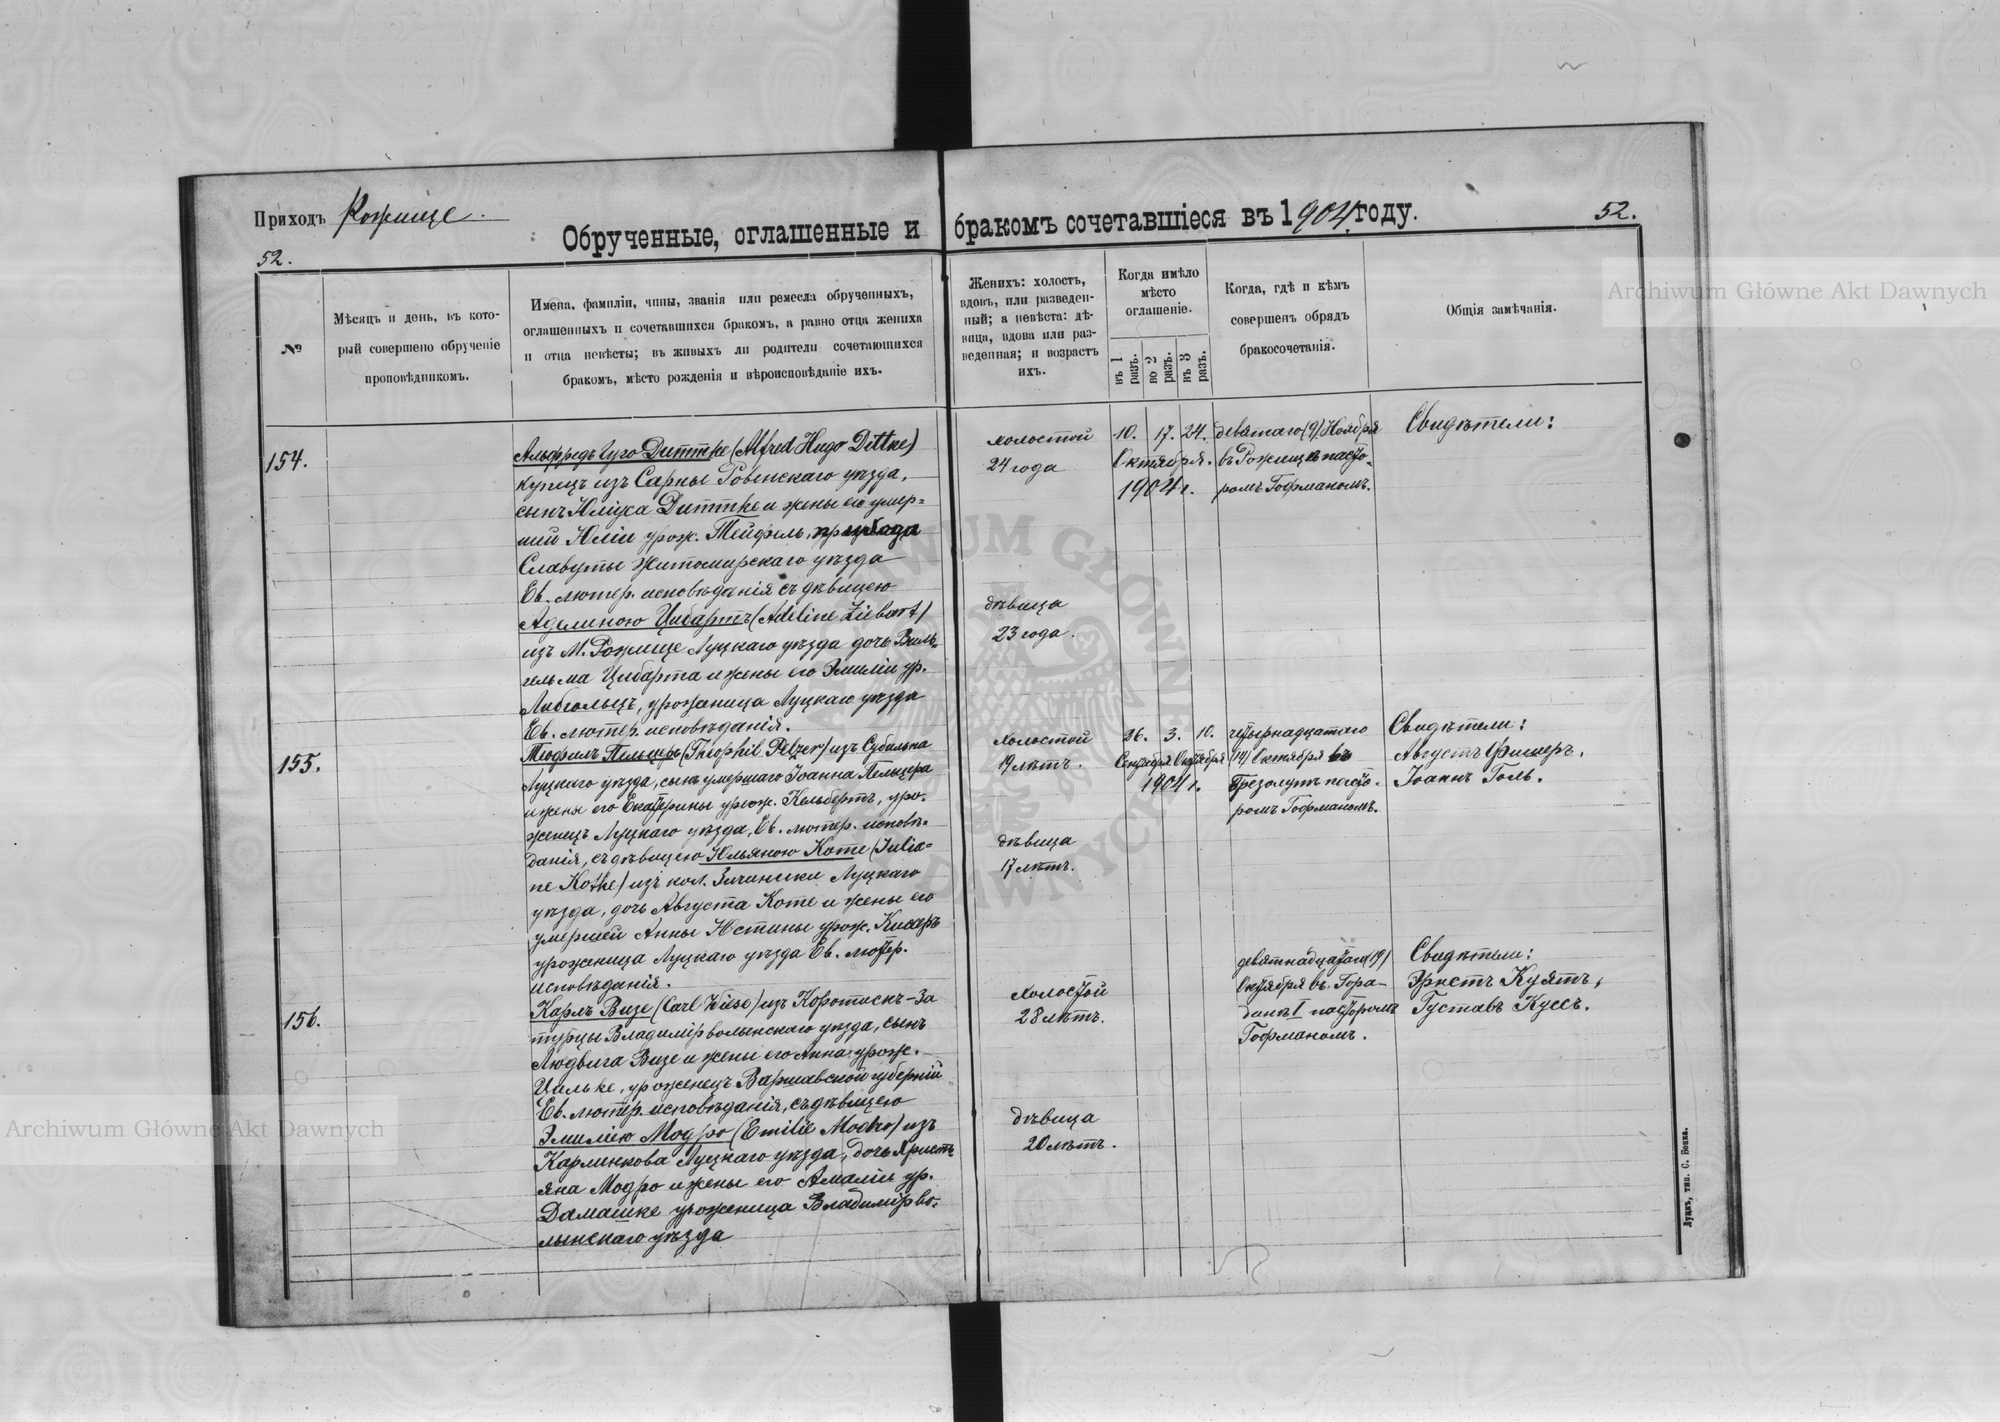 Приходъ Рожище.
Обрученные, оглашенные и бракомъ сочетавшіеся въ 1904 году.
52.
52.
№
Мѣсяцъ и день, въ кото-
рый совершено обрученіе
проповѣдникомъ.
Имена, фамиліи, чины, званія или ремесла обрученныхъ,
оглашенныхъ и сочетавшихся бракомъ, а равно отца жениха
и отца невѣсты; въ живыхъ ли родители сочетающихся
бракомъ, мѣсто рожденія и вѣроисповѣданіе ихъ.
Женихъ: холостъ,
вдовъ, или разведен-
ный; а невѣста: дѣ-
вица, вдова или раз-
веденная; и возрастъ
ихъ.
Когда имѣло
мѣсто
оглашеніе.
въ 1
разъ.
во 2
разъ.
въ 3
разъ.
Когда, гдѣ и кѣмъ
совершенъ обрядъ
бракосочетанія.
Общія замѣчанія.
154.
Альфредъ Гуго Диттке (Alfred Hugo Dittke)
купецъ изъ Сарны Ровенскаго уѣзда,
сынъ Юліуса Диттке и жены его умер-
шей Юліи урож. Тейфель, прихода
Славуты Житомирскаго уѣзда
Ев. лютер. исповѣданія съ дѣвицею
Аделиною Цибартъ (Adeline Ziebart)
изъ М. Рожище Луцкаго уѣзда дочь Виль-
гельма Цибарта и жены его Эмиліи ур.
Либгольцъ, уроженица Луцкаго уѣзда
Ев. лютер. исповѣданія.
холостой
24 года
дѣвица
23 года.
10. 17. 24.
Октября.
1904 г.
девятаго (9) Ноября
въ Рожищѣ пасто-
ромъ Гофманомъ.
Свидѣтели:
155.
Теофилъ Пельцеръ (Theophil Pelzer) изъ
Луцкаго уѣзда, сынъ умершаго Іоанна Пельцера
и жены его Екатерины урож. Кельбертъ, уро-
женецъ Луцкаго уѣзда, Ев. лютер. исповѣ-
данія, съ дѣвицею Юльяною Коте (Julia-
ne Kothe) изъ кол. Луцкаго
уѣзда, дочь Августа Коте и жены его
умершей Анны Юстины урож.
уроженица Луцкаго уѣзда Ев. лютер.
исповѣданія.
холостой
19 лѣтъ.
дѣвица
17 лѣтъ.
26. 3. 10.
Сентября Октября
1904 г.
четырнадцатаго
(14) Октября въ
пасто-
ромъ Гофманомъ.
Свидѣтели:
Августъ Фишеръ.
Іоаннъ Голь.
156.
Карлъ Визе (Carl Wiese) изъ
Владимірволынскаго уѣзда, сынъ
Людвига Визе и жены его Анна урож.
Цильке, уроженецъ Варшавской губерніи
Ев. лютер. исповѣданія, съ дѣвицею
Эмиліею Модро (Emilie Modro) изъ
Карлинкова Луцкаго уѣзда, дочь Христь-
яна Модро и жены его Амаліи ур.
Дамашке уроженица Владимірво-
лынскаго уѣзда
холостой
28 лѣтъ.
дѣвица
20 лѣтъ.
девятнадцатаго (19)
Октября въ Гора-
I пасторомъ
Гофманомъ.
Свидѣтели:
Эрнстъ Куятъ,
Густавъ Куссъ.
Луцкъ, тип. С. Бонка.
Archiwum Główne Akt Dawnych
Archiwum Główne Akt Dawnych